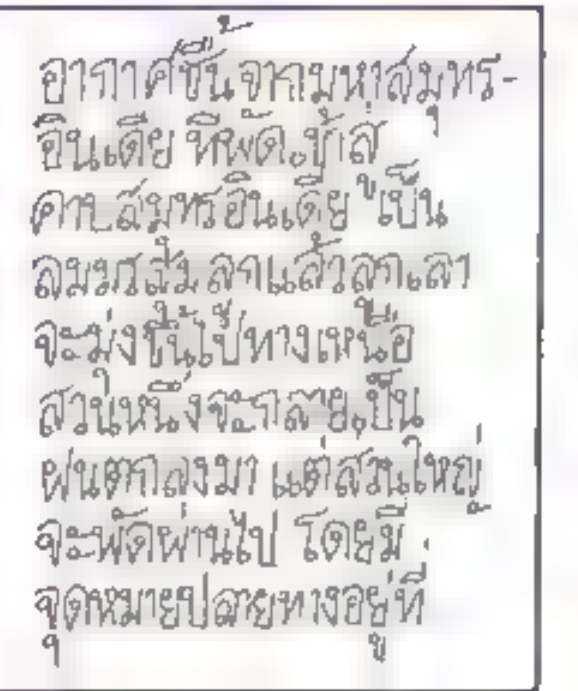 อากาศชื้นจากมหาสมุทร-
อินเดีย ที่พัดเข้าสู่
คาบสมุทรอินเดีย เป็น
ลมมรสุม
จะมุ่งขึ้นไปทางเหนือ
ส่วนหนึ่งจะกลายเป็น
ฝนตกลงมา แต่ส่วนใหญ่
จะพัดผ่านไป โดยมี
จุดหมายปลายทางอยู่ที่